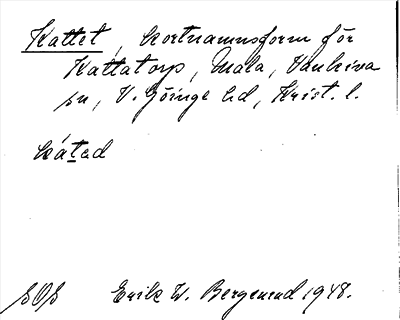 Kattet, kortnamnsform för
Kattatorp, Mala, Vankiva
sn, V. Göinge hd, Krist. l.
kátad
SOS Erik W. Bergerud 1948.